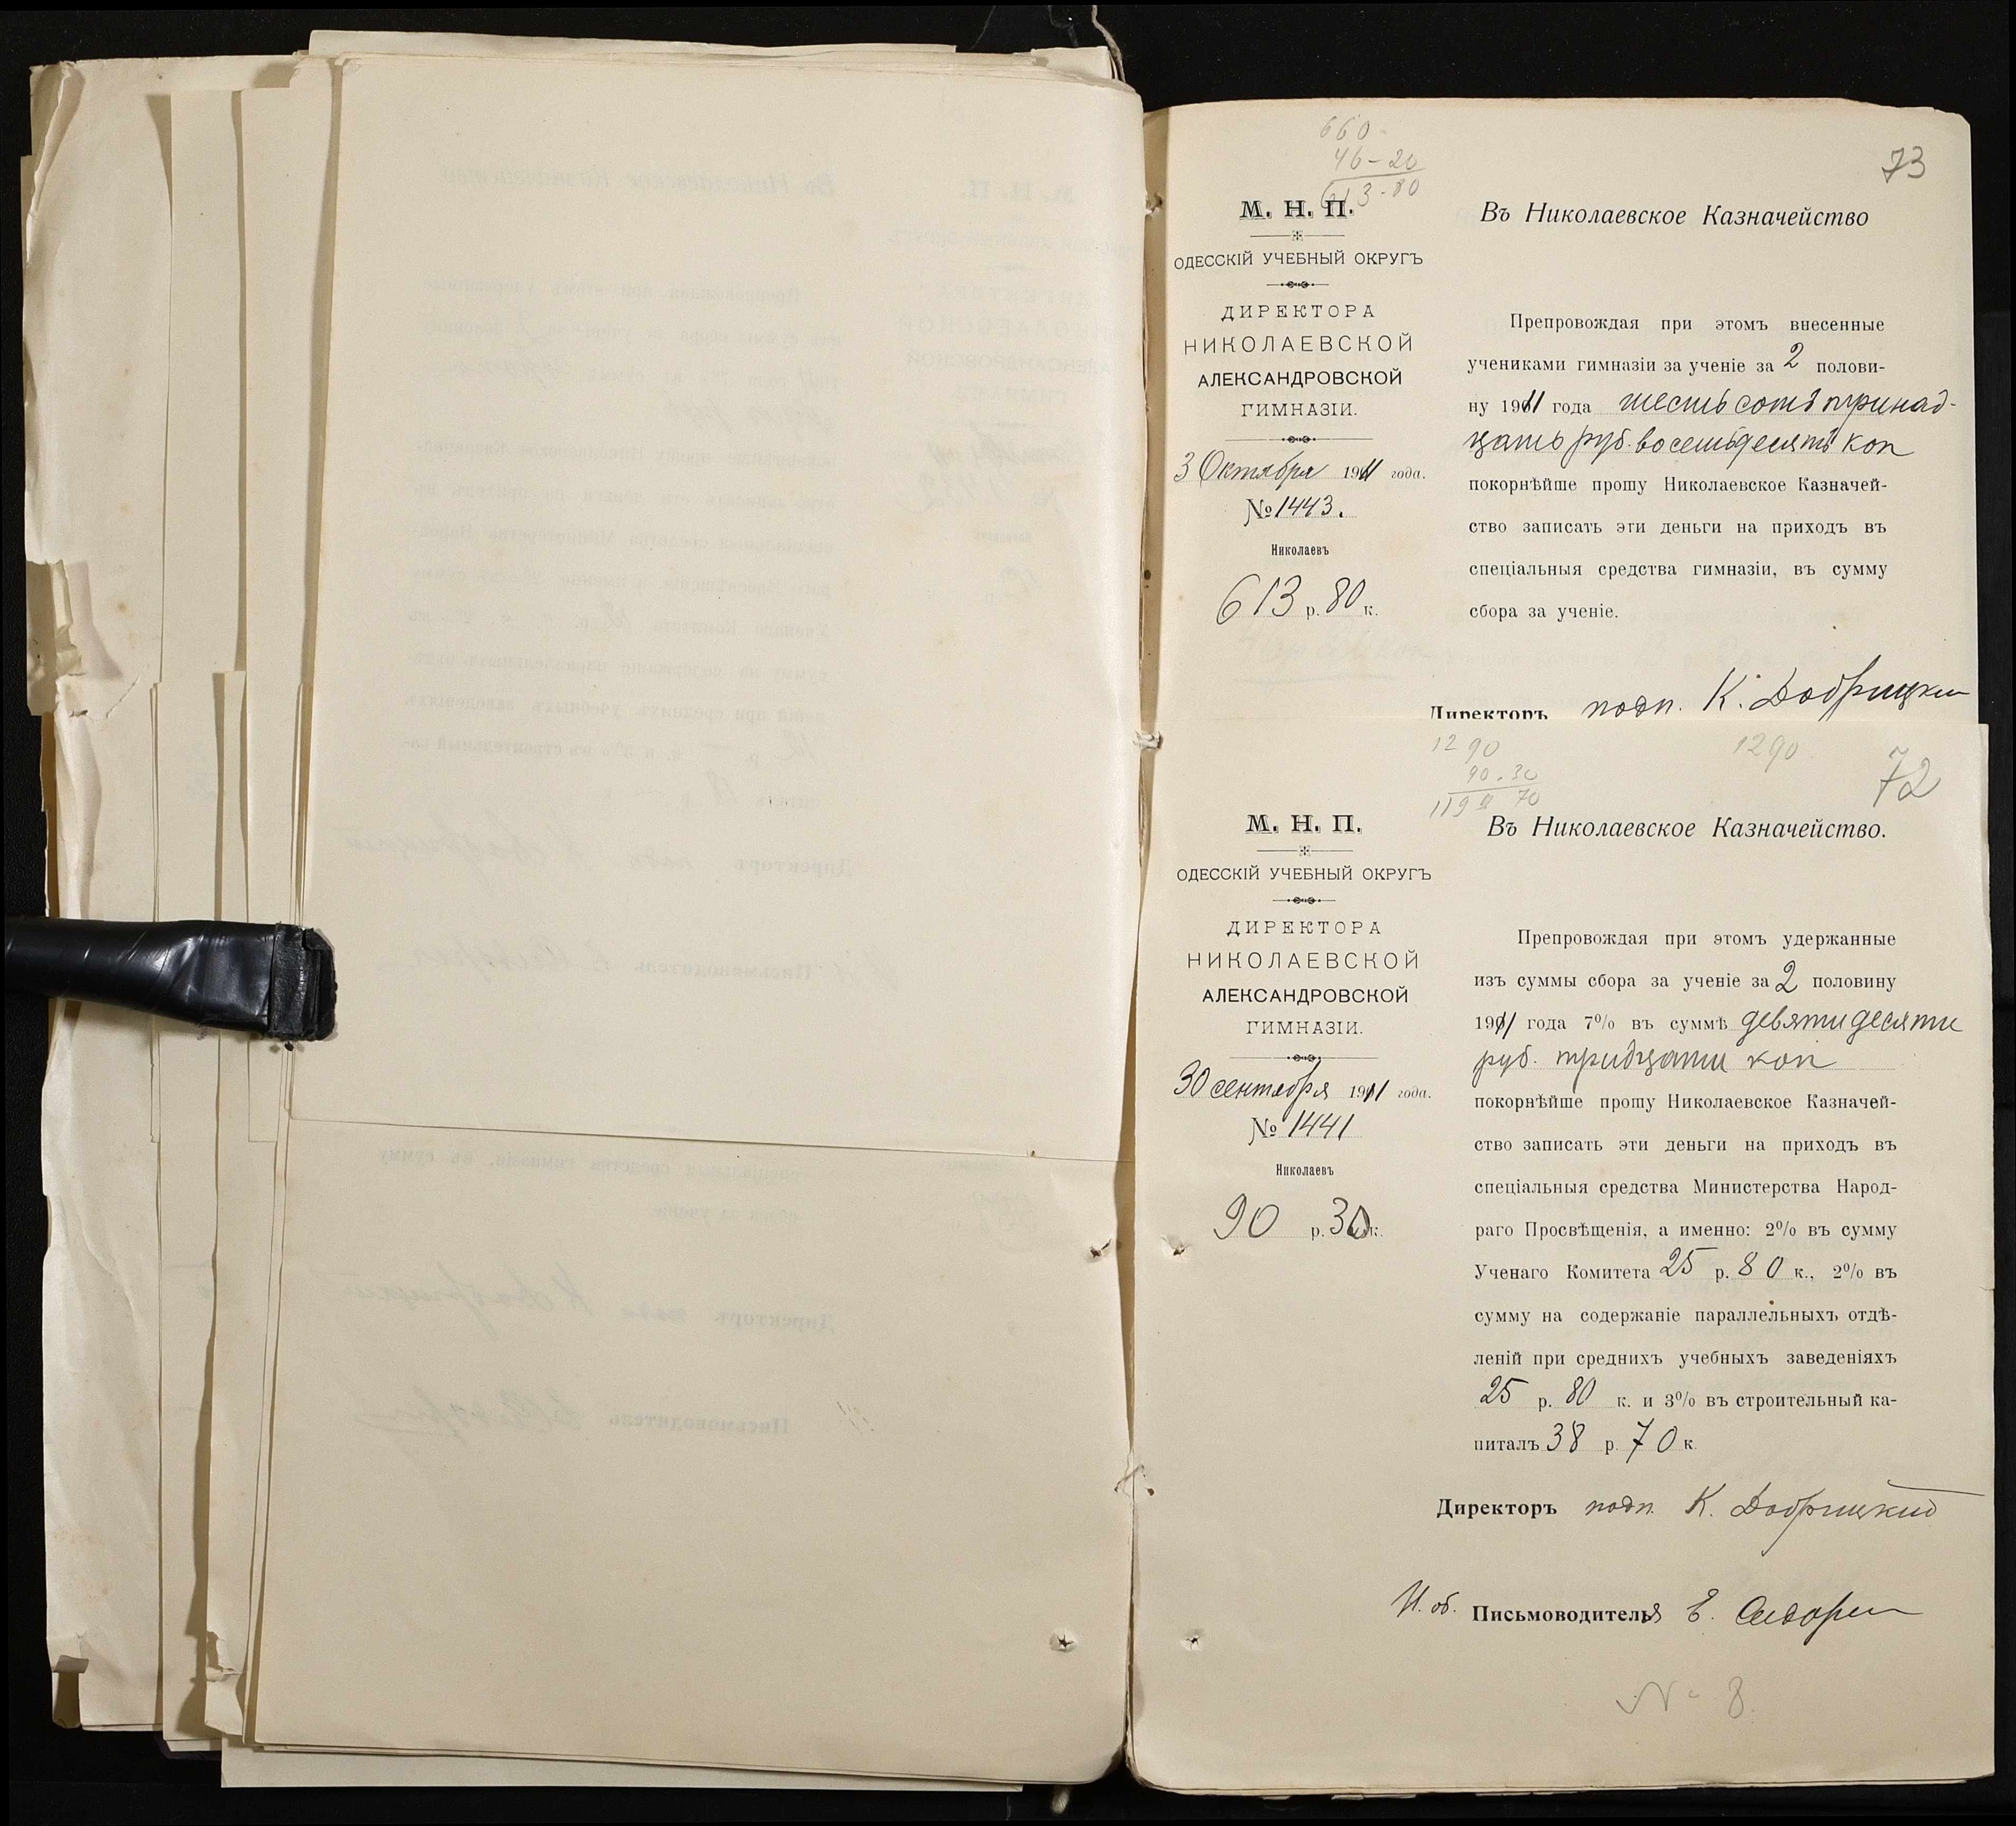 660 -
46 - 20
613 - 80
73
М. Н. П.
ОДЕССКІЙ УЧЕБНЫЙ ОКРУГЪ
ДИРЕКТОРА
НИКОЛАЕВСКОЙ
АЛЕКСАНДРОВСКОЙ
ГИМНАЗІИ.
3 Октября 1911 года.
№ 1443.
Николаевъ
613 р. 80 к.
Въ Николаевское Казначейство
Препровождая при этомъ внесенные
учениками гимназіи за ученіе за 2 полови-
ну 1911 года шестьсотъ тринад-
цать руб. восемьдесятъ коп
покорнѣйше прошу Николаевское Казначей-
ство записать эти деньги на приходъ въ
спеціальныя средства гимназіи, въ сумму
сбора за ученіе.
Директоръ подп. К. Добрицкій
1290
90 - 30
119 70
1290
72
М. Н. П.
ОДЕССКІЙ УЧЕБНЫЙ ОКРУГЪ
ДИРЕКТОРА
НИКОЛАЕВСКОЙ
АЛЕКСАНДРОВСКОЙ
ГИМНАЗІИ.
30 сентября 1911 года.
№ 1441
Николаевъ
90 р. 30 к.
Въ Николаевское Казначейство.
Препровождая при этомъ удержанные
изъ суммы сбора за ученіе за 2 половину
1911 года 7% въ суммѣ девяти десяти
руб. тридцати коп
покорнѣйше прошу Николаевское Казначей-
ство записать эти деньги на приходъ въ
спеціальныя средства Министерства Народ-
раго Просвѣщенія, а именно: 2% въ сумму
Ученаго Комитета 25 р. 80 к., 2% въ
сумму на содержаніе параллельныхъ отдѣ-
леній при среднихъ учебныхъ заведеніяхъ
25 р. 80 к. и 3% въ строительный ка-
питалъ 38 р. 70 к.
Директоръ подп. К. Добрицкій
И. об. Письмоводителя Е. Сидорен
№ 8.